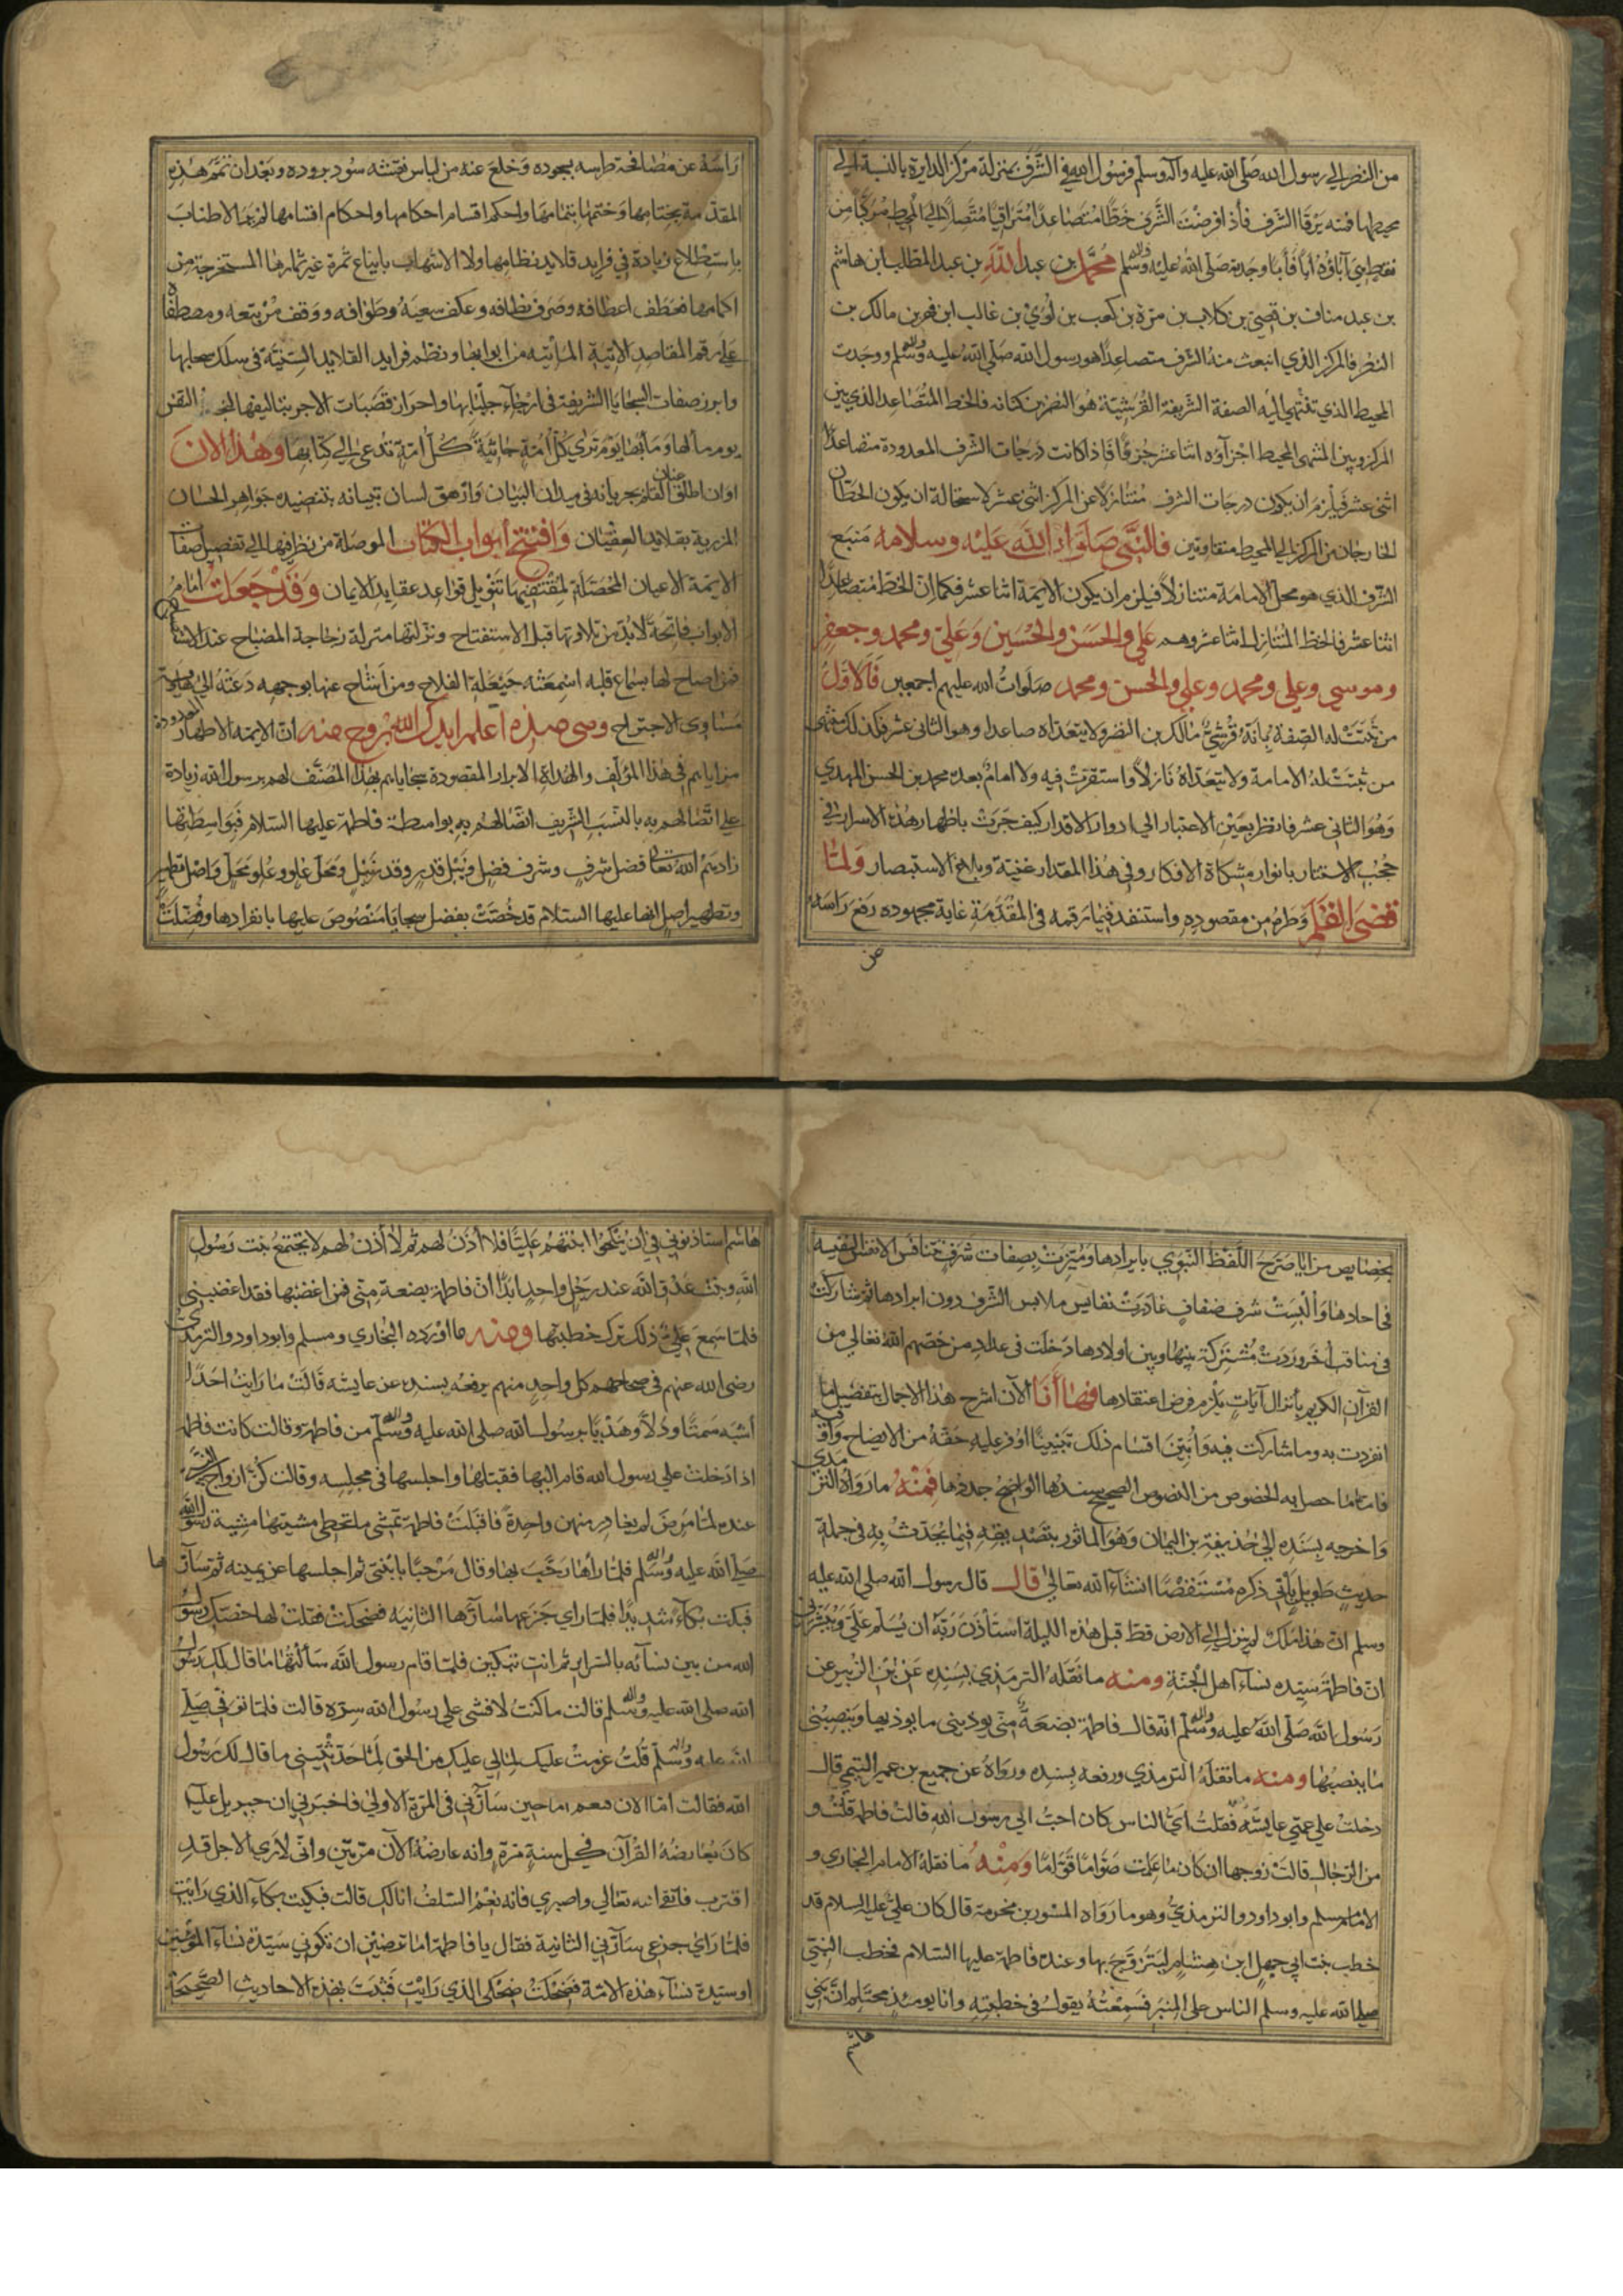 من النضر إلى رسول الله صلى الله عليه وآله وسلم فرسول الله في الشرف بمنزلة مركز الدايرة بالنسبة إلى
محيطها فمنه يرقا الشرف فأذا فرضت الشرف خطًا متصاعدًا متراقيًا متصلًا إلى المحيط مركبًا من
نقط هي آباؤه أبًا فأبًا وجدته صلى الله عليه وآله وسلم محمد بن عبد الله بن عبد المطلب ابن هاشم
بن عبد مناف بن قصي بن كلاب بن مرة بن كعب بن لؤي بن غالب ابن فهر بن مالك بن
النضر فالمركز الذي انبعث منه الشرف متصاعدًا هو رسول الله صلى الله عليه وآله وسلم ووجدت
المحيط الذي تنتهي إليه الصفة الشريفة القرشية هو النضر بن كنانه فالخط المتصاعد الذي بين
المركز وبين المنتهى المحيط اجزآؤه اثنا عشر جزءًا فإذا كانت درجات الشرف المعدودة متصاعدًا
اثنى عشر فيلزم ان يكون درجات الشرف متنازلًا عن المركز اثنى عشر لاستحالة ان يكون الخطان
الخارجان من المركز إلى المحيط متفاوتين فالنبي صلوات الله عليه وسلامه منبع
الشرف الذي هو محل الامامة متنازلًا فيلزم ان يكون الايمة اثنا عشر فكما ان الخط متصاعدًا
اثنا عشر فالخط المتنازل اثنا عشر وهم علي والحسن والحسين وعلي ومحمد وجعفر
وموسي وعلي ومحمد وعلي والحسن ومحمد صلوات الله عليهم اجمعين فالاول
من ثبتت له الصفة بأنه قرشي مالك بن النضر ولا يتعداه صاعدا وهو الثاني عشر فكذلك منتهى
من ثبتت له الامامة ولا يتعداه نازلًا واستقرت فيه ولا امام بعده محمد بن الحسن المهدي
وهو الثاني عشر فانظر بعين الاعتبار إلى ادوار الاقدار كيف جرت باظهار هذه الاسرار في
حجب الاستتار بانوار مشكاة الافكار وفي هذا المقدار غنية وبلاغ لاستبصار ولما
قضى القلم وطره من مقصوده واستنفد فيما رقمه في المقدمة غاية مجهوده رفع راسه
راسه عن مصافحة طرسه بسجوده وخلع عنه من لباس نقشه سود بروده وبعد ان تمم هذه
المقدمة بختامها وختمها بتمامها واحكم اقسام احكامها واحكام اقسامها لم يرد الاطناب
باستطلاع زيادة في فرايد قلايد نظامها ولا الاسهاب باينباع ثمرة غير ثمارها المستخرجة من
اكمامها فعطف اعطافه وصرف نظافه وعكف سعيه وطوافه ووقف مرتبعه ومصطافه
على رقم المقاصد الاتية المأتيه من ابوابها ونظم فرايد القلايد السنية في سلك سحابها
وابرز صفات السجايا الشريفة في ارجاء جلبابها واحراز قصبات الاجر بتاليفها النفس
يوم مآلها ومآبها يوم ترى كل أمة جاثية كل أمة تدعى إلى كتابها وهذا الان
اوان اطلاق عنان القلم جريانه في ميدان البيان وازهق لسان تبيانه بتنضيده جواهر الحسان
المزرية بقلايد العقيان وافتتح أبواب الكتاب الموصلة من نظر فيها إلى تفصيل صفات
الايمة الاعيان المحصلة لمقتضيها تنويل قواعد عقايد الايمان وقد جعلت امام
الابواب فاتحة لابد من تلاوتها قبل الاستفتاح ونزلتها منزلة زجاجة المصباح عند الاستصباح
فمن اصاخ لها بسماع قلبه اسمعته حيعلة الفلاح ومن اشاح عنها بوجهه دعته إلى هاوية
مساوى الاجتراح وهي هذه اعلم ايدك الله بروح منه ان الايمة الاطهار المعدودة
مزاياهم في هذا المؤلف والهداة الابرار المقصودة سجاياهم بهذا المصنف لهم برسول الله زيادة
على اتصالهم به بالنسب الشريف اتصالهم به بواسطة فاطمة عليها السلام فبواسطتها
زادهم الله تعالى فضل شرف وشرف فضل ونيل قدر وقدر نيل ومحل علو وعلو محل واصل تطهير
وتطهير أصل فأنها عليها السلام قد خصت بفضل سجايا منصوص عليها بانفرادها وفضلت
بخصايص مزايا صرح اللفظ النبوي بايرادها وميزت بصفات شرف تتنافس الانفس النفيسة
في احادها وألبست شرف ضفاف غادرت نفايس ملابس الشرف دون ابرادها ثم شاركت
في مناقب أخر وردت مشتركة بينها وبين أولادها دخلت في عداد من خصهم الله تعالى من
القرآن الكريم بأنزال آيات يلزم فرض اعتقادها فها أنا الآن اشرح هذا الاجمال بتفصيل ما
انفردت به وما شاركت فيه وأبين اقسام ذلك تبيينًا أوفر عليه حقه من الايضاح وأوفيه
فاما ما حصل به الخصوص من النصوص الصحيح سندها الواضح جددها فمنه ما رواه الترمذي
واخرجه بسنده إلى حذيفة بن اليمان وهو المأثور بتصديقه فيما يحدث به في جملة
حديث طويل يأتي ذكره مستقصًا انشاء الله تعالى قال قال رسول الله صلى الله عليه
وسلم ان هذا ملك لم ينزل إلى الارض قط قبل هذه الليلة استأذن ربه ان يسلم علي ويبشرني
ان فاطمة سيده نسآء اهل الجنة ومنه ما نقله الترمذي بسنده عن ابن الزبير عن
رسول الله صلى الله عليه وآله وسلم انه قال فاطمة بضعة مني يوذيني ما يوذيها وينصبني
ما ينصبها ومنه ما نقله الترمذي ورفعه بسنده ورواه عن جميع بن عمير التيمي قال
دخلت على عمتي عايشه فقلت أي الناس كان احب إلى رسول الله قالت فاطمه قلت و
من الرجال قالت زوجها ان كان ما علمت صوامًا قوامًا ومنه ما نقله الامام البخاري و
الامام مسلم وابو داود والترمذي وهو ما رواه المسور بن مخرمة قال كان علي عليه السلام قد
خطب بنت ابي جهل ابن هشام ليتزوج بها وعنده فاطمة عليها السلام فخطب النبي
صلى الله عليه وسلم الناس على المنبر فسمعته يقول في خطبته وانا يومئذ محتلم ان بني
هاشم استاذنوني في أن ينكحوا ابنتهم عليًا فلا اأذن لهم ثم لا أأذن لهم لا تجتمع بنت رسول
الله وبنت عدو الله عند رجل واحد ابدًا ان فاطمة بضعة مني فمن اغضبها فقد اغضبني
فلما سمع علي ذلك ترك خطبتها ومنه ما اورده البخاري ومسلم وابو داود والترمذي
رضي الله عنهم في صحاحهم كل واحد منهم يرفعه بسنده عن عايشه قالت ما رايت احدًا
أشبه سمتًا ودلًا وهديًا برسول الله صلى الله عليه وآله وسلم من فاطمة وقالت كانت فاطمة
اذا دخلت على رسول الله قام اليها فقبلها واجلسها في مجلسه وقالت كن ازواج النبي
عنده لما مرض لم يغادر منهن واحدة فاقبلت فاطمة تمشي ما تخطي مشيتها مشية رسول الله
صلى الله عليه وآله وسلم فلما رآها رحب بها وقال مرحبًا بابنتي ثم اجلسها عن يمينه ثم سآرها
فبكت بكاءً شديدًا فلما رأي جزعها سآرها الثانيه فضحكت فقلت لها خصك رسول
الله من بين نسآئه بالسرار ثم انت تبكين فلما قام رسول الله سألتها ما قال لك رسول
الله صلى الله عليه وآله وسلم قالت ما كنت لافشي على رسول الله سره قالت فلما توفي صلى
الله عليه وآله وسلم قلت عزمت عليك بما لي عليك من الحق لما حدثتيني ما قال لك رسول
الله فقالت اما الان فنعم اما حين سآرني في المرة الاولى فاخبرني ان جبريل عليه
كان يعارضه القرآن في كل سنة مرة وانه عارضه الآن مرتين واني لا أري الاجل قد
اقترب فاتقي الله تعالي واصبري فانه نعم السلف انا لك قالت فبكيت بكآء الذي رايت
فلما رأى جزعي سآرني الثانية فقال يا فاطمة اما ترضين ان تكوني سيدة نسآء المؤمنين
او سيدة نسآء هذه الامة فضحكت ضحكي الذي رايت فثبت بهذه الاحاديث الصحيحة